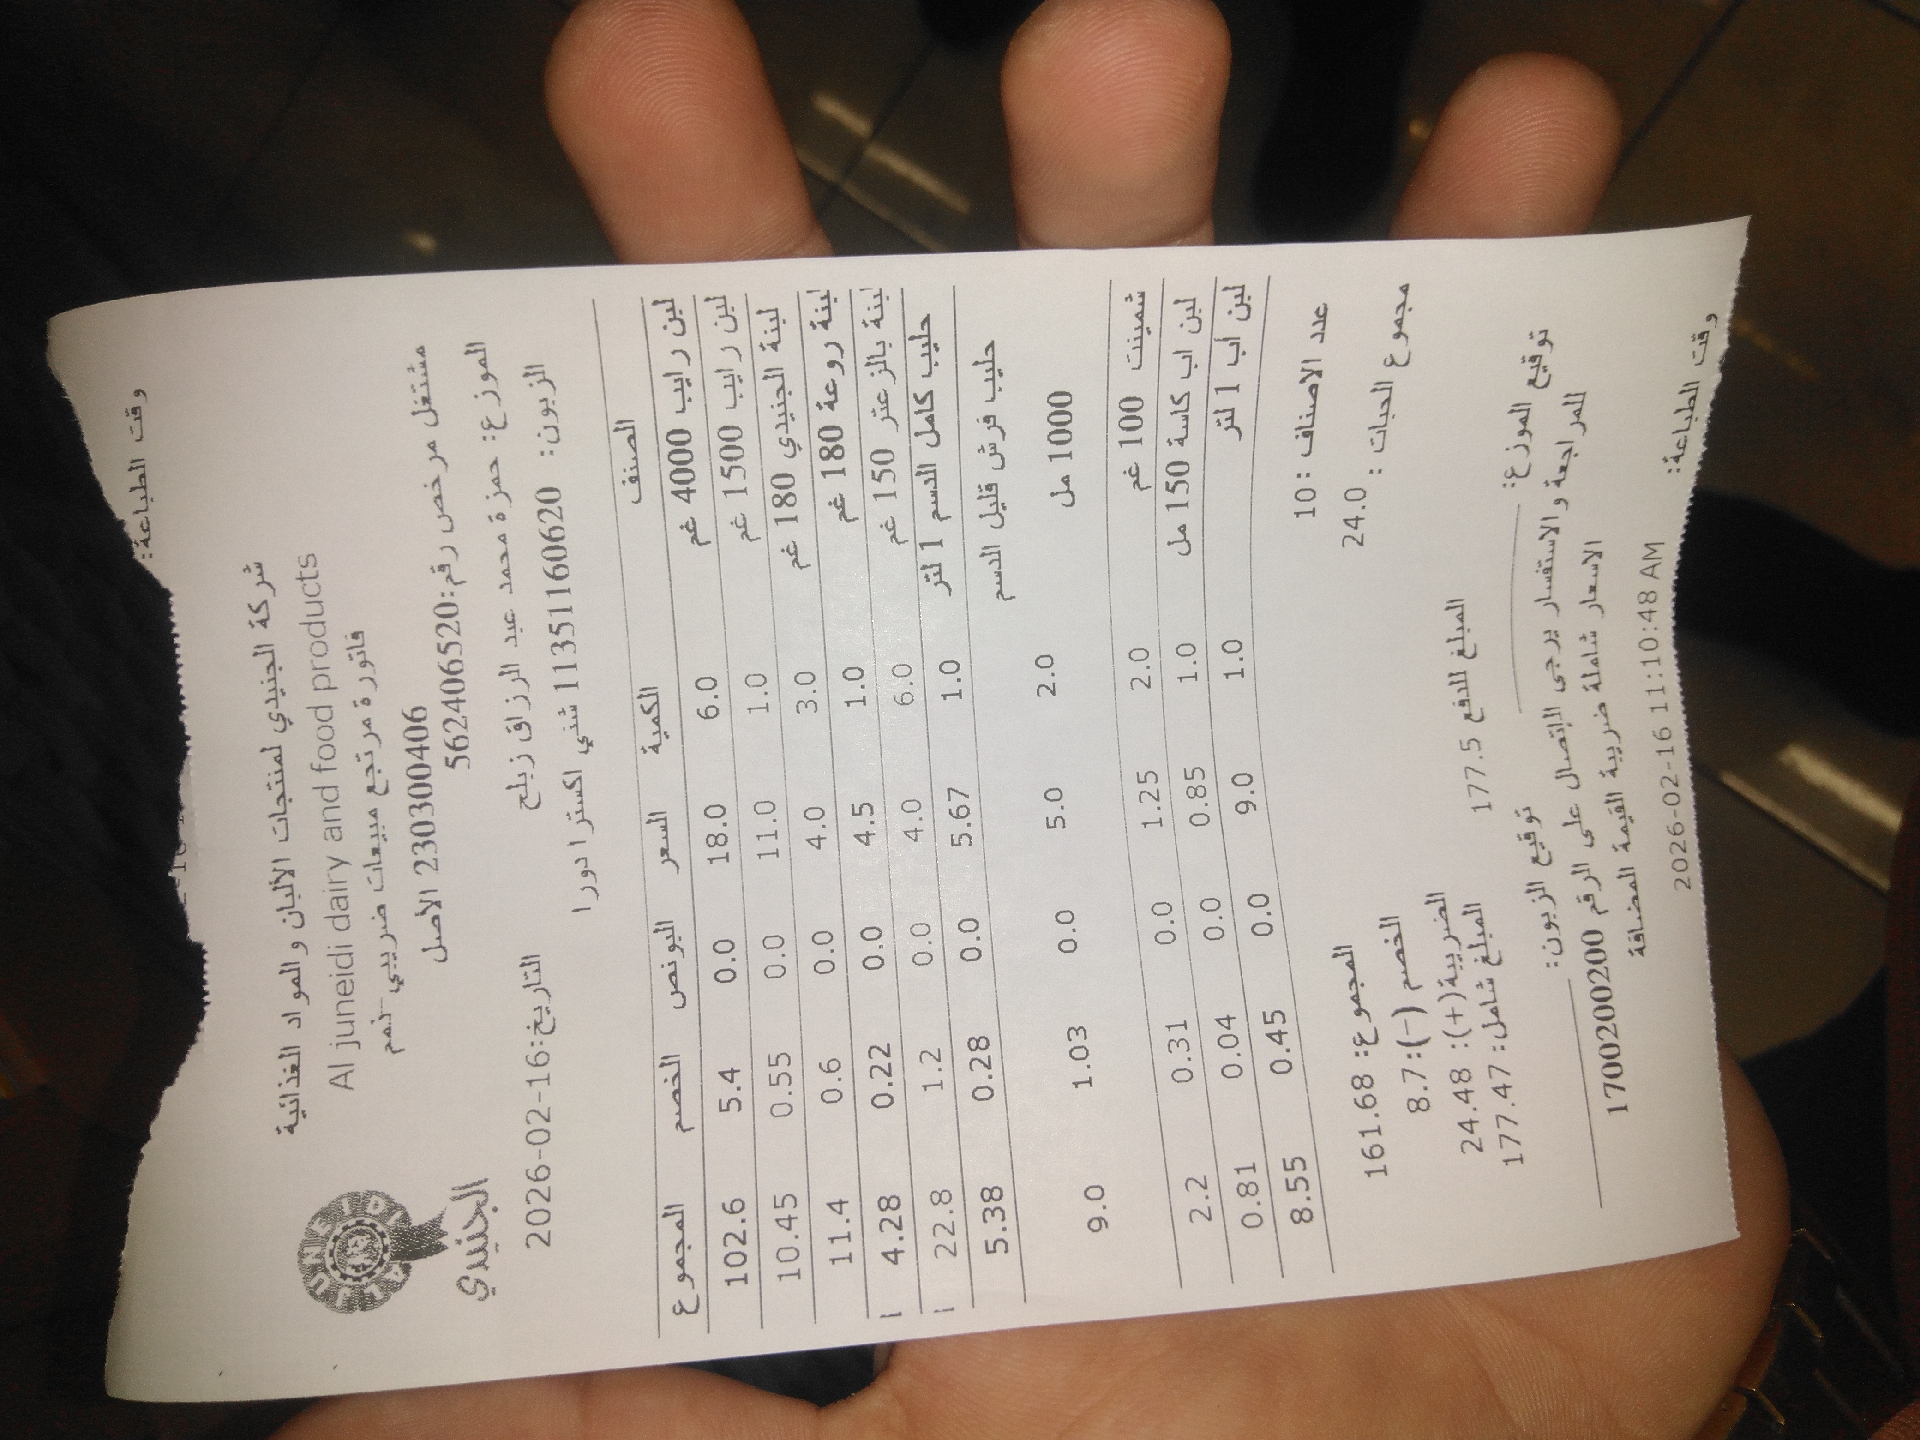 وقت الطباعة:
شركة الجنيدي لمنتجات الألبان والمواد الغذائية
Al juneidi dairy and food products
فاتورة مرتجع مبيعات ضريبي -ذمم
الجنيدي
مشتغل مرخص رقم:562406520
230300406 الأصل
الموزع: حمزة محمد عبد الرزاق زبلح
التاريخ:2026-02-16
الزبون: 11351160620 شني اكسترا دورا
الصنف الكمية السعر البونص الخصم المجموع
لبن رايب 4000 غم 6.0 18.0 0.0 5.4 102.6
لبن رايب 1500 غم 1.0 11.0 0.0 0.55 10.45
لبنة الجنيدي 180 غم 3.0 4.0 0.0 0.6 11.4
لبنة روعة 180 غم 1.0 4.5 0.0 0.22 4.28
لبنة بالزعتر 150 غم 6.0 4.0 0.0 1.2 22.8
حليب كامل الدسم 1 لتر 1.0 5.67 0.0 0.28 5.38
حليب فرش قليل الدسم
1000 مل 2.0 5.0 0.0 1.03 9.0
شمينت 100 غم 2.0 1.25 0.0 0.31 2.2
لبن اب كاسة 150 مل 1.0 0.85 0.0 0.04 0.81
لبن اب 1 لتر 1.0 9.0 0.0 0.45 8.55
عدد الاصناف :10
المجموع: 161.68
مجموع الحبات : 24.0
الخصم (-): 8.7
الضريبة(+): 24.48
المبلغ للدفع 177.5
المبلغ شامل: 177.47
توقيع الموزع:
توقيع الزبون:
للمراجعة والاستفسار يرجى الإتصال على الرقم 1700200200
الاسعار شاملة ضريبة القيمة المضافة
وقت الطباعة: 2026-02-16 11:10:48 AM